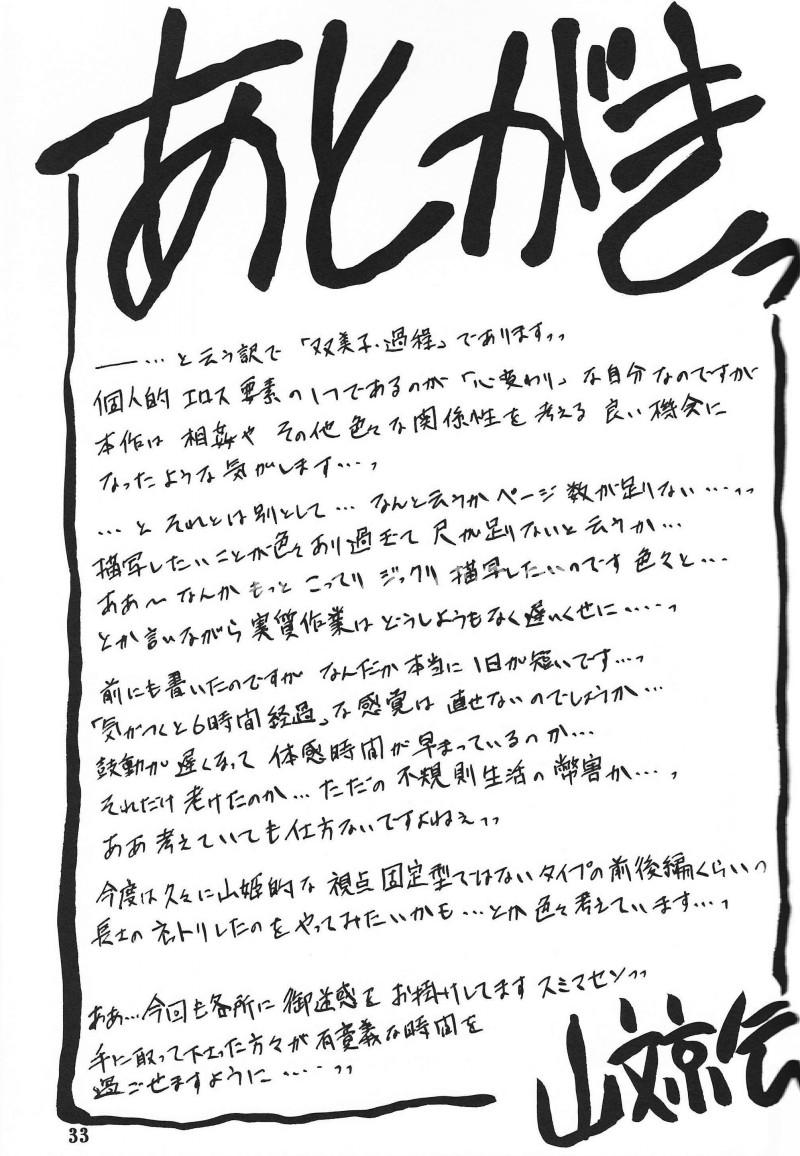 あとがきっ
——…と云う訳で「双美子・過程」でありますっっ
個人的エロス要素の1つであるのが「心変わり」な自分なのですが
本作は相姦やその他色々な関係性を考える良い機会に
なったような気がします…っ
…とそれとは別として…なんと云うかページ数が足りない…っっ
描写したいことが色々あり過ぎて尺が足りないと云うか…
ああ〜なんかもっとこってりジックリ描写したいのです色々と…
とか言いながら実質作業はどうしようもなく遅いくせに…‥っ
前にも書いたのですがなんだか本当に1日が短いです…っ
「気がつくと6時間経過」な感覚は直せないのでしょうか…
鼓動が遅くなって体感時間が早まっているのか…
それだけ老けたのか…ただの不規則生活の弊害か…っ
ああ考えていても仕方ないですよねぇっっ
今度は久々に山姫的な視点固定型ではないタイプの前後編くらいっ
長士のネットリしたのをやってみたいかも…とか色々考えています…っ
ああ…今回も各所に御迷惑をお掛けしてますスミマセンっっ
手に取って下さった方々が有意義な時間を
過ごせますように…‥っっ
山文京伝
33